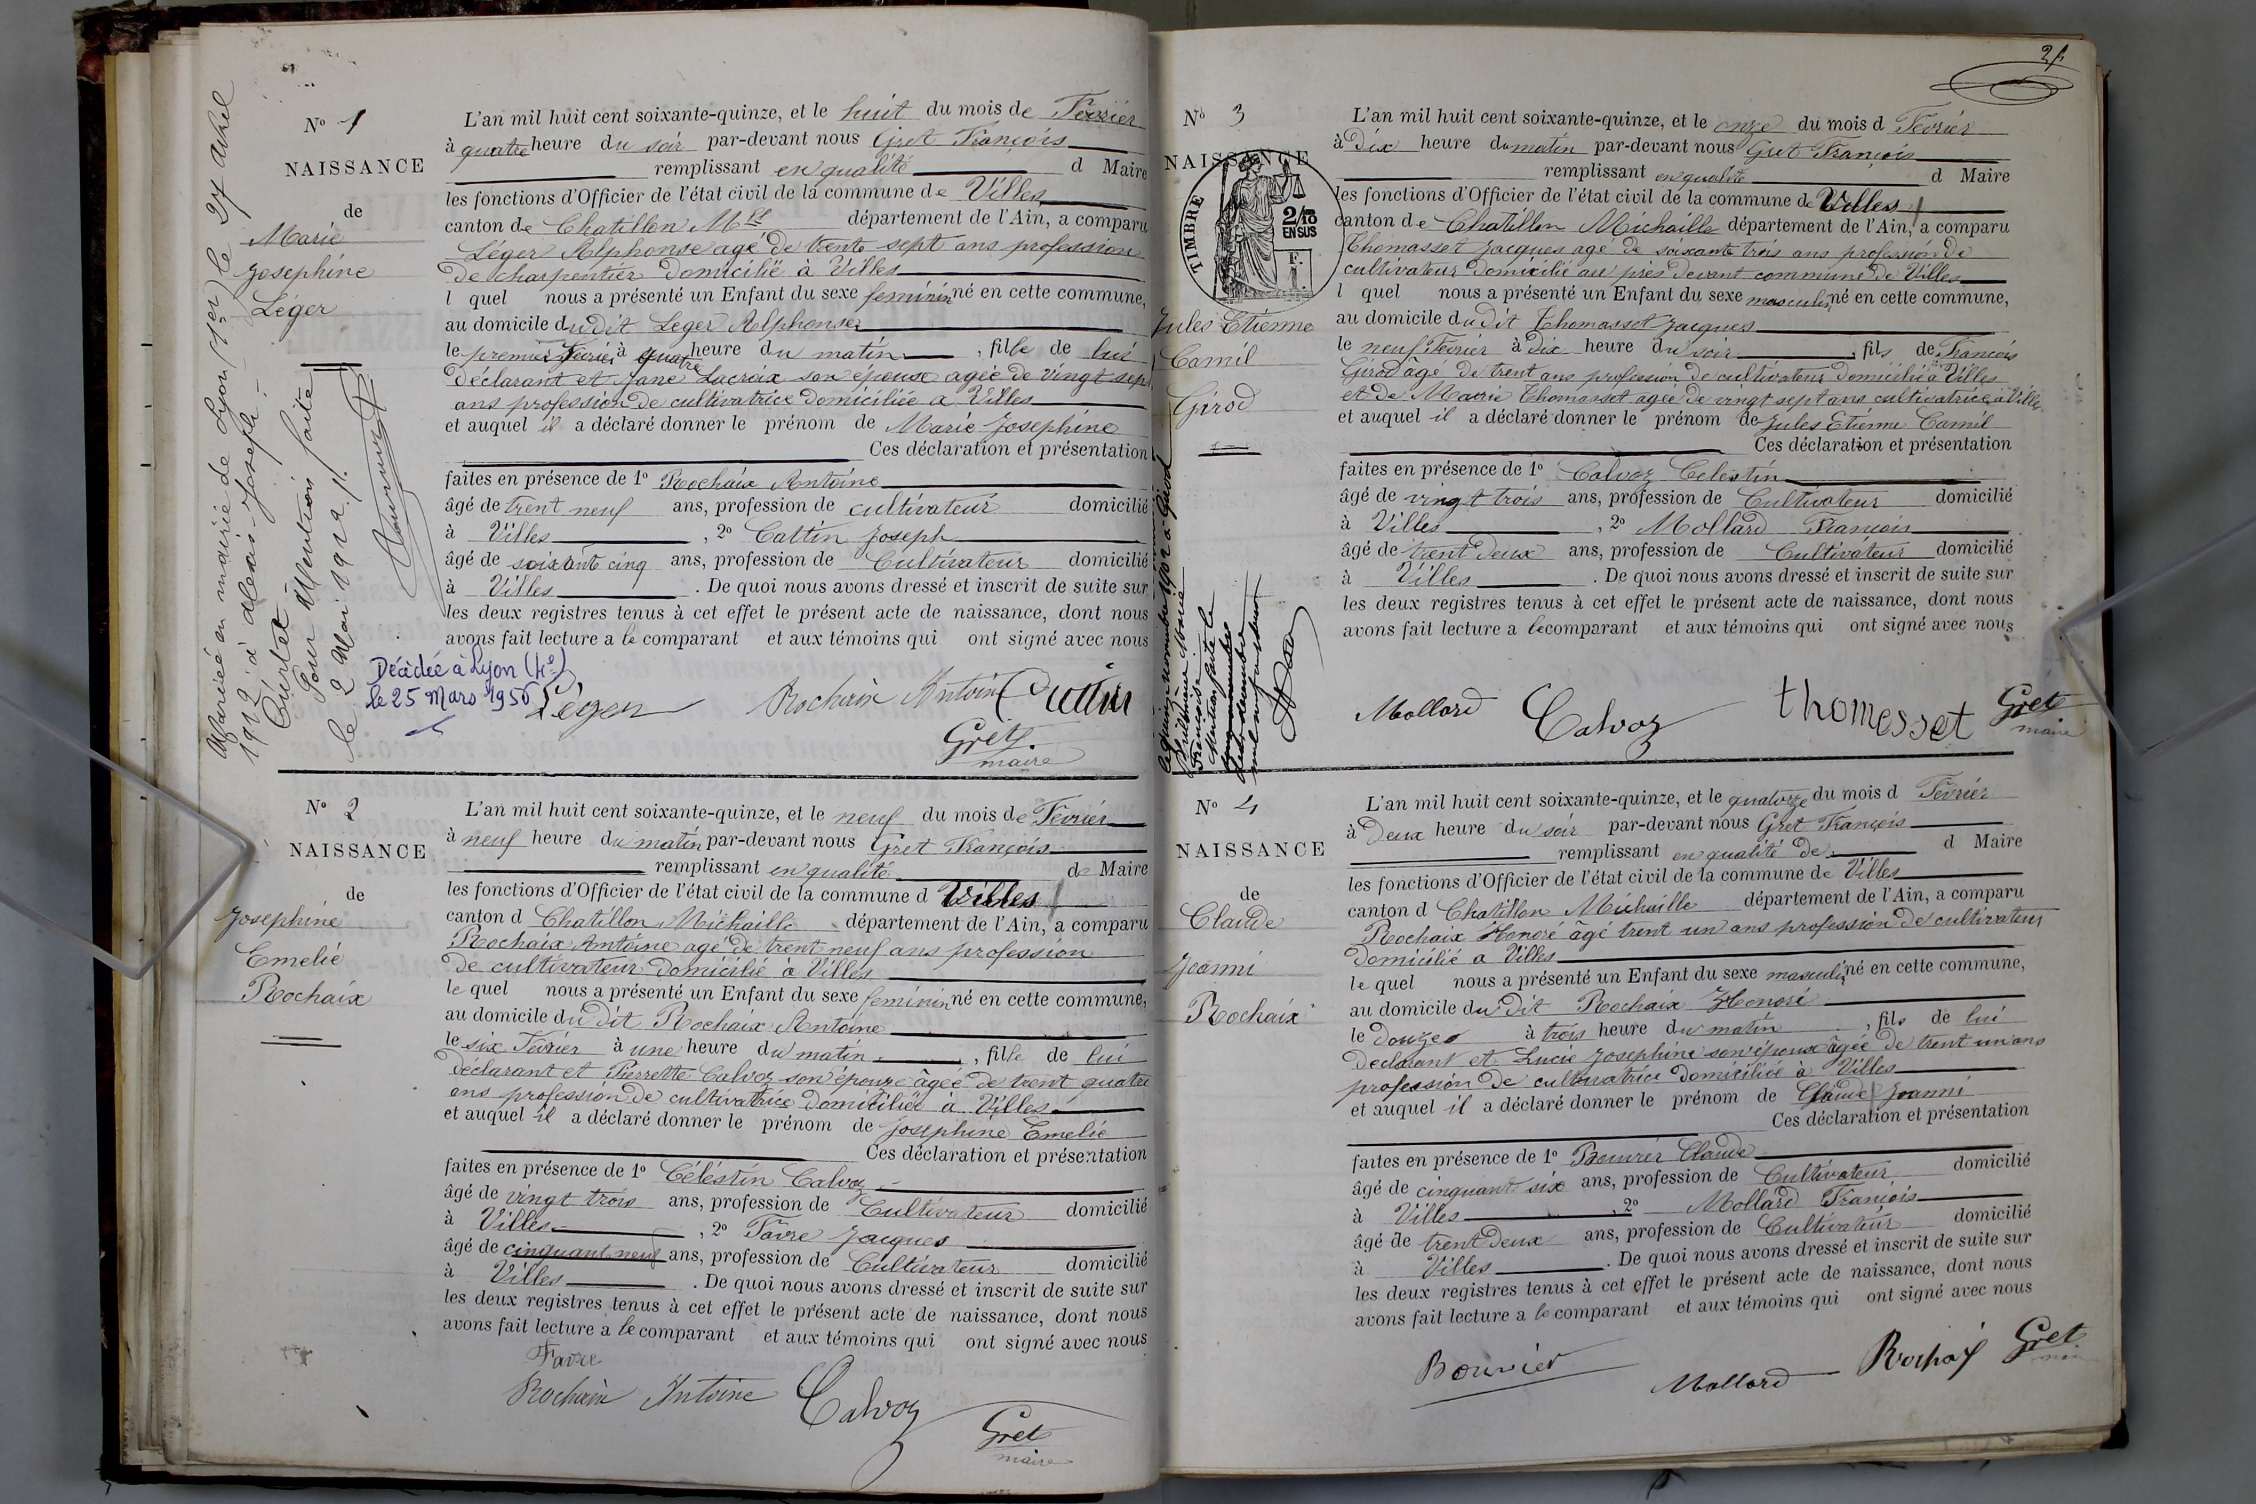 Nº 1
NAISSANCE
de
Marie
Josephine
Léger
Mariée en mairie de Lyon (1er) le 27 avril
1912 à Alexis-Joseph
Pour Mention faite
le 2 Mai 1912
Décédée à Lyon (4e)
le 25 Mars 1956
L'an mil huit cent soixante-quinze, et le huit du mois de Fevrier
à quatre heure du soir par-devant nous Gret François
remplissant en qualité d Maire
les fonctions d'Officier de l'état civil de la commune de Villes
canton de Chatillon Mlle département de l'Ain, a comparu
Léger Alphonse agé de trente sept ans profession
de charpentier domicilié à Villes
l quel nous a présenté un Enfant du sexe feminin né en cette commune,
au domicile du dit Leger Alphonse
le premier Fevrier à quatre heure du matin, fille de lui
déclarant et Jane Lacroix son épouse agée de vingt sept
ans profession de cultivatrice domiciliée a Villes
et auquel il a déclaré donner le prénom de Marie Josephine
Ces déclaration et présentation
faites en présence de 1º Rochaix Antoine
âgé de trent neuf ans, profession de cultivateur domicilié
à Villes, 2º Cattin Joseph
âgé de soixante cinq ans, profession de Cultivateur domicilié
à Villes. De quoi nous avons dressé et inscrit de suite sur
les deux registres tenus à cet effet le présent acte de naissance, dont nous
avons fait lecture a le comparant et aux témoins qui ont signé avec nous
Léger Rochaix Antoine Cattin
Gret
maire
Nº 2
NAISSANCE
de
Josephine
Emelie
Rochaix
L'an mil huit cent soixante-quinze, et le neuf du mois de Fevrier
à neuf heure du matin par-devant nous Gret François
remplissant en qualité de Maire
les fonctions d'Officier de l'état civil de la commune d Villes
canton d Chatillon Michaille département de l'Ain, a comparu
Rochaix Antoine agé de trent neuf ans profession
de cultivateur domicilié à Villes
le quel nous a présenté un Enfant du sexe feminin né en cette commune,
au domicile du dit Rochaix Antoine
le six Fevrier à une heure du matin, fille de lui
déclarant et Pierrette Calvoz son épouze âgée de trent quatre
ans profession de cultivatrice domiciliée à Villes
et auquel il a déclaré donner le prénom de Josephine Emelie
Ces déclaration et présentation
faites en présence de 1º Céléstin Calvoz
âgé de vingt trois ans, profession de Cultivateur domicilié
à Villes, 2º Favre Jacques
âgé de cinquant neuf ans, profession de Cultivateur domicilié
à Villes. De quoi nous avons dressé et inscrit de suite sur
les deux registres tenus à cet effet le présent acte de naissance, dont nous
avons fait lecture a le comparant et aux témoins qui ont signé avec nous
Favre
Rochaix Antoine Calvoz
Gret
maire
Nº 3
NAISSANCE
TIMBRE
2/10
EN SUS
F.
Jules Etienne
Camil
Girod
L'an mil huit cent soixante-quinze, et le onze du mois d Fevrier
à Dix heure du matin par-devant nous Gret François
remplissant en qualité d Maire
les fonctions d'Officier de l'état civil de la commune de Villes
canton de Chatillon Michaille département de l'Ain, a comparu
Thomasset Jacques agé de soixante trois ans profession de
cultivateur domicilié au près devant commune de Villes
l quel nous a présenté un Enfant du sexe masculin né en cette commune,
au domicile du dit Thomasset Jacques
le neuf Fevrier à Dix heure du soir, fils de François
Girod âgé de trent ans profession de cultivateur domicilié à Villes
et de Marie Thomasset agée de vingt sept ans cultivatrice à Villes
et auquel il a déclaré donner le prénom de Jules Etienne Camil
Ces déclaration et présentation
faites en présence de 1º Calvoz Celestin
âgé de vingt trois ans, profession de Cultivateur domicilié
à Villes, 2º Mollard François
âgé de trent deux ans, profession de Cultivateur domicilié
à Villes. De quoi nous avons dressé et inscrit de suite sur
les deux registres tenus à cet effet le présent acte de naissance, dont nous
avons fait lecture a le comparant et aux témoins qui ont signé avec nous
Mollard Calvoz thomesset Gret
maire
Nº 4
NAISSANCE
de
Claude
Joanni
Rochaix
L'an mil huit cent soixante-quinze, et le quatorze du mois d Fevrier
à Deux heure du soir par-devant nous Gret François
remplissant en qualité de d Maire
les fonctions d'Officier de l'état civil de la commune de Villes
canton d Chatillon Michaille département de l'Ain, a comparu
Rochaix Honoré agé trent un ans profession de cultivateur
domicilié a Villes
le quel nous a présenté un Enfant du sexe masculin né en cette commune,
au domicile du dit Rochaix Honoré
le douze à trois heure du matin, fils de lui
declarant et Lucie Josephine son épouse âgée de trent un ans
profession de cultivatrice domiciliée à Villes
et auquel il a déclaré donner le prénom de Claude Joanni
Ces déclaration et présentation
faites en présence de 1º Bouvier Claude
âgé de cinquant six ans, profession de Cultivateur domicilié
à Villes, 2º Mollard François
âgé de trent deux ans, profession de Cultivateur domicilié
à Villes. De quoi nous avons dressé et inscrit de suite sur
les deux registres tenus à cet effet le présent acte de naissance, dont nous
avons fait lecture a le comparant et aux témoins qui ont signé avec nous
Bouvier Mollard Rochaix Gret